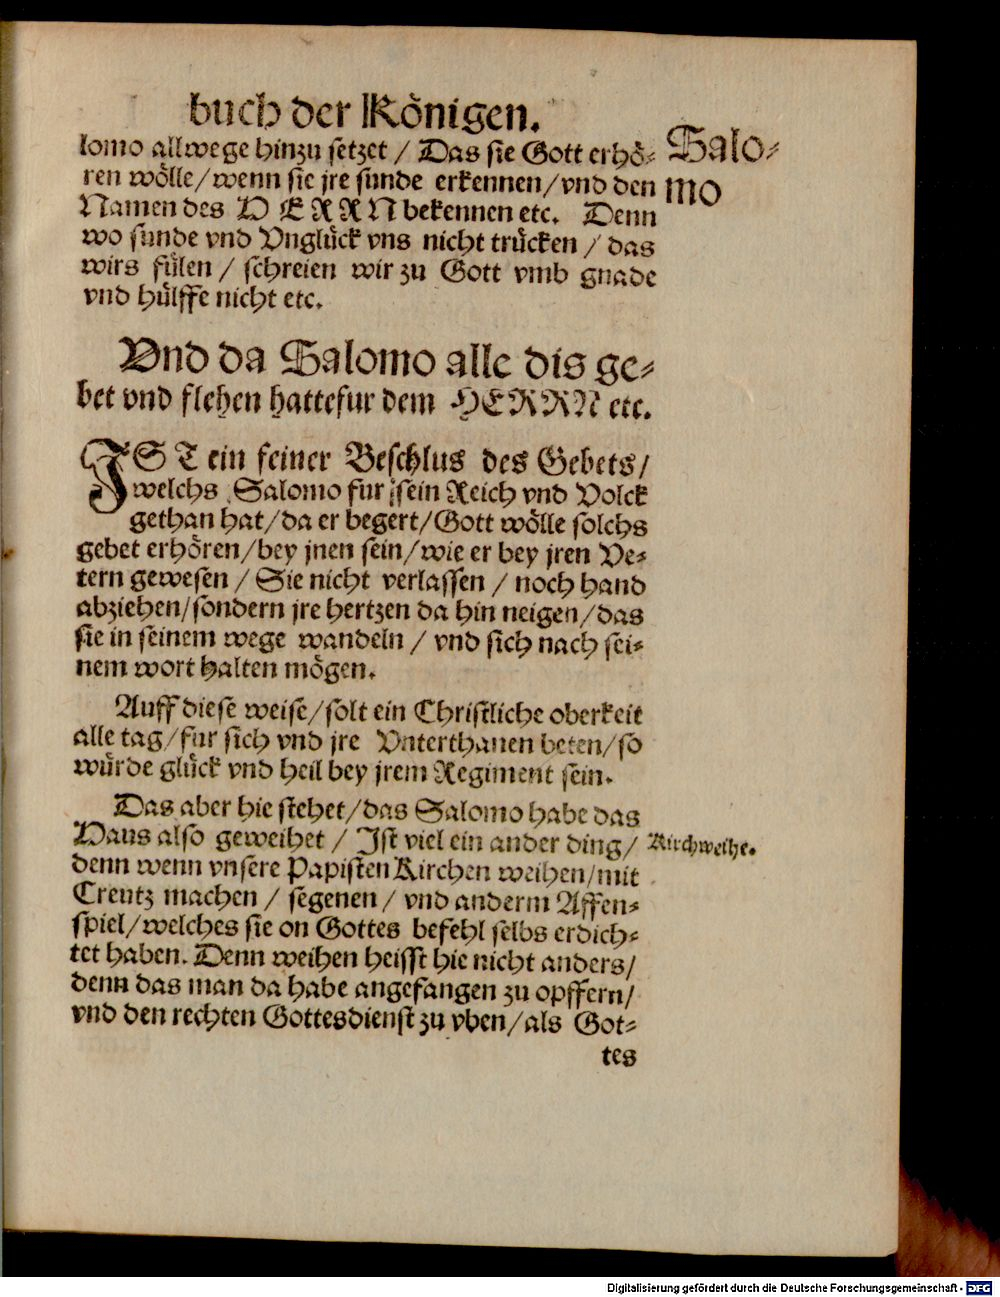 buch der Königen.
Salo⸗
mo
lomo allwege hinzu setzet / Das sie Gott erhö⸗
ren wölle/wenn sie jre sunde erkennen/vnd den
Namen des HERRN bekennen etc. Denn
wo sunde vnd Vnglück vns nicht trücken / das
wirs fülen / schreien wir zu Gott vmb gnade
vnd hülffe nicht etc.
Vnd da Salomo alle dis ge⸗
bet vnd flehen hattefur dem HERRN etc.
IST ein feiner Beschlus des Gebets/
welchs Salomo fur sein Reich vnd Volck
gethan hat/da er begert/Gott wölle solchs
gebet erhören/bey jnen sein/wie er bey jren Ve⸗
tern gewesen / Sie nicht verlassen / noch hand
abziehen/sondern jre hertzen da hin neigen/das
sie in seinem wege wandeln / vnd sich nach sei⸗
nem wort halten mögen.
Auff diese weise/solt ein Christliche oberkeit
alle tag/fur sich vnd jre Vnterthanen beten/so
würde glück vnd heil bey jrem Regiment sein.
Das aber hie stehet/das Salomo habe das
Haus also geweihet / Ist viel ein ander ding/
Kirchweihe.
denn wenn vnsere Papisten Kirchen weihen/mit
Creutz machen / segenen / vnd anderm Affen⸗
spiel/welches sie on Gottes befehl selbs erdich⸗
tet haben. Denn weihen heisst hie nicht anders/
denn das man da habe angefangen zu opffern/
vnd den rechten Gottesdienst zu vben/als Got⸗
tes
Digitalisierung gefördert durch die Deutsche Forschungsgemeinschaft - DFG